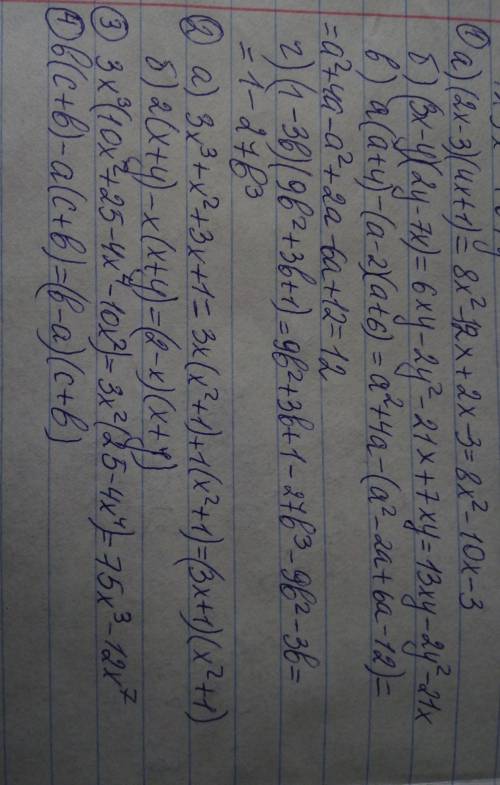 ① а) (2x-3)(4x+1) = 8x²-12x+2x-3 = 8x²-10x-3
б) (3x-y)(2y-7x) = 6xy-2y²-21x+7xy = 13xy-2y²-21x
в) a(a+4)-(a-2)(a+6) = a²+4a-(a²-2a+6a-12) =
= a²+4a-a²+2a-6a+12 = 12
г) (1-3b)(9b²+3b+1) = 9b²+3b+1-27b³-9b²-3b =
= 1-27b³
② а) 3x³+x²+3x+1 = 3x(x²+1)+1(x²+1) = (3x+1)(x²+1)
б) 2(x+y)-x(x+y) = (2-x)(x+y)
③ 3x³(10x²+25-4x⁴-10x²) = 3x²(25-4x⁴) = 75x³-12x⁷
④ b(c+b)-a(c+b) = (b-a)(c+b)